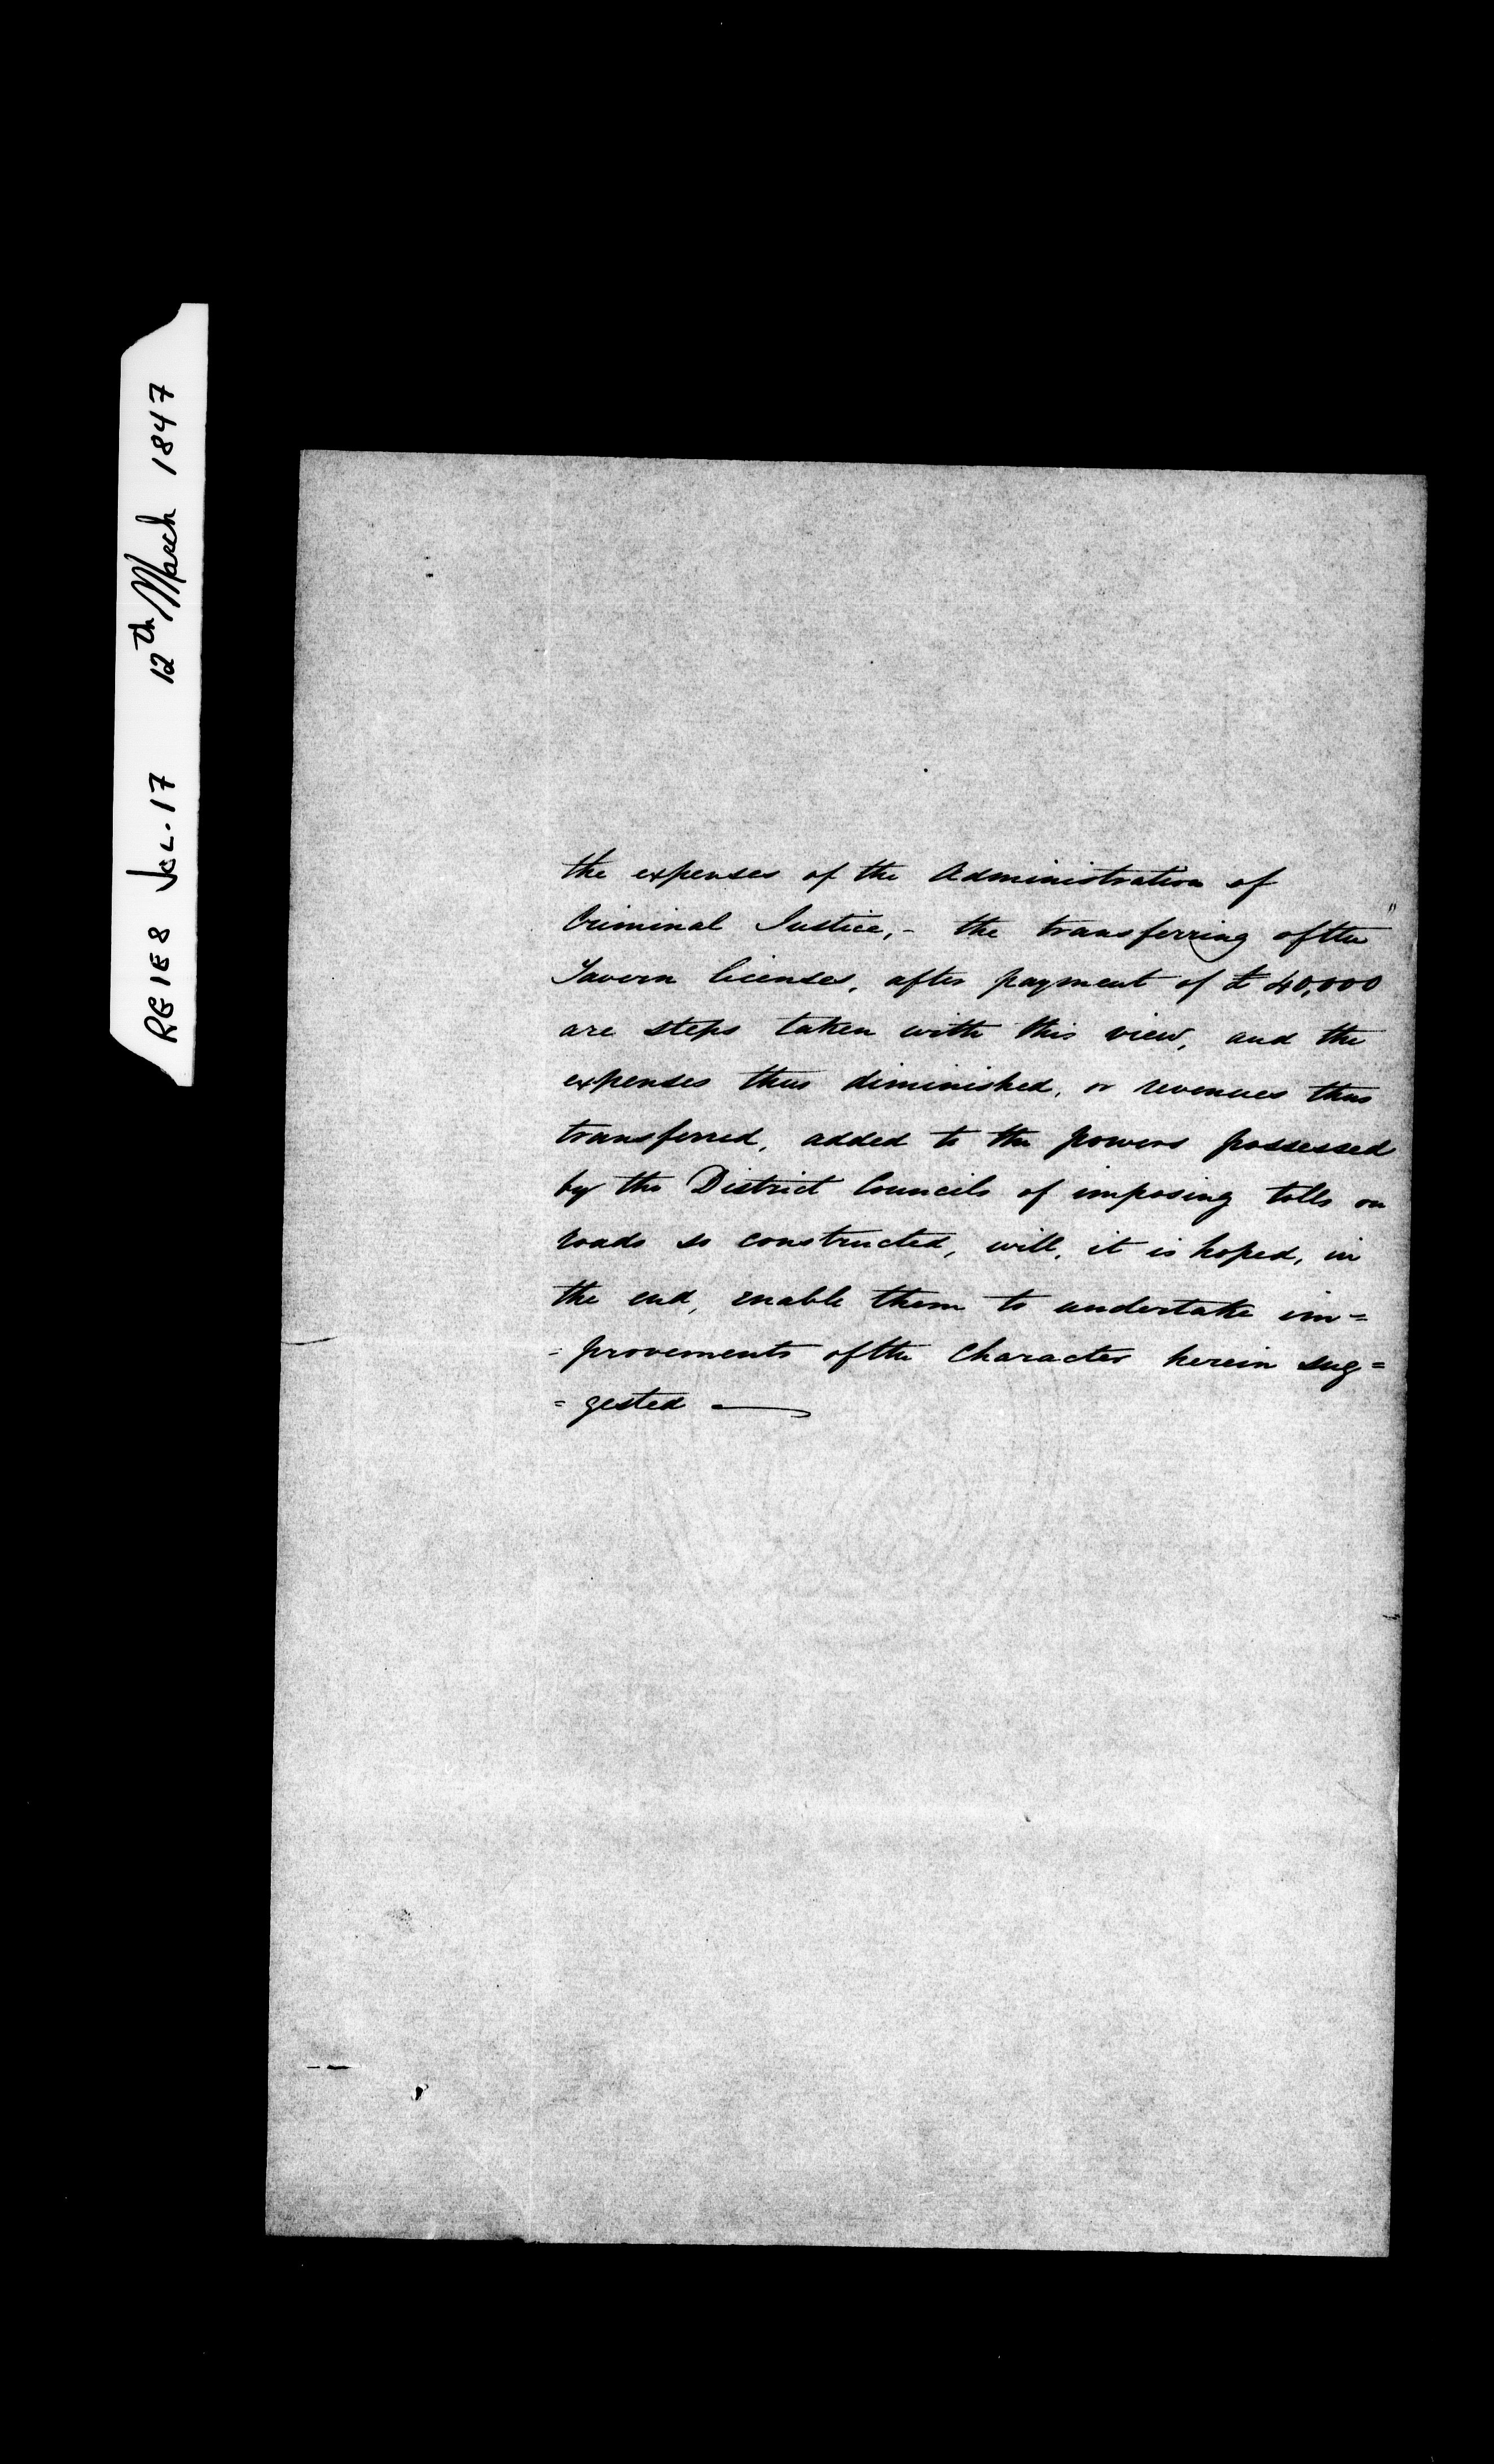 RG1E8 VOL. 17 12th March 1847
the expenses of the Administration of
Criminal Justice,- the transferring of the "
Tavern licenses, after payment of £40,000
are steps taken with this view, and the
expenses thus diminished, or revenues thus
transferred, added to the powers possessed
by the District Councils of imposing tolls on
roads so constructed, will, it is hoped, in
the end, enable them to undertake im=
-provements of the Character herein sug=
=gested —